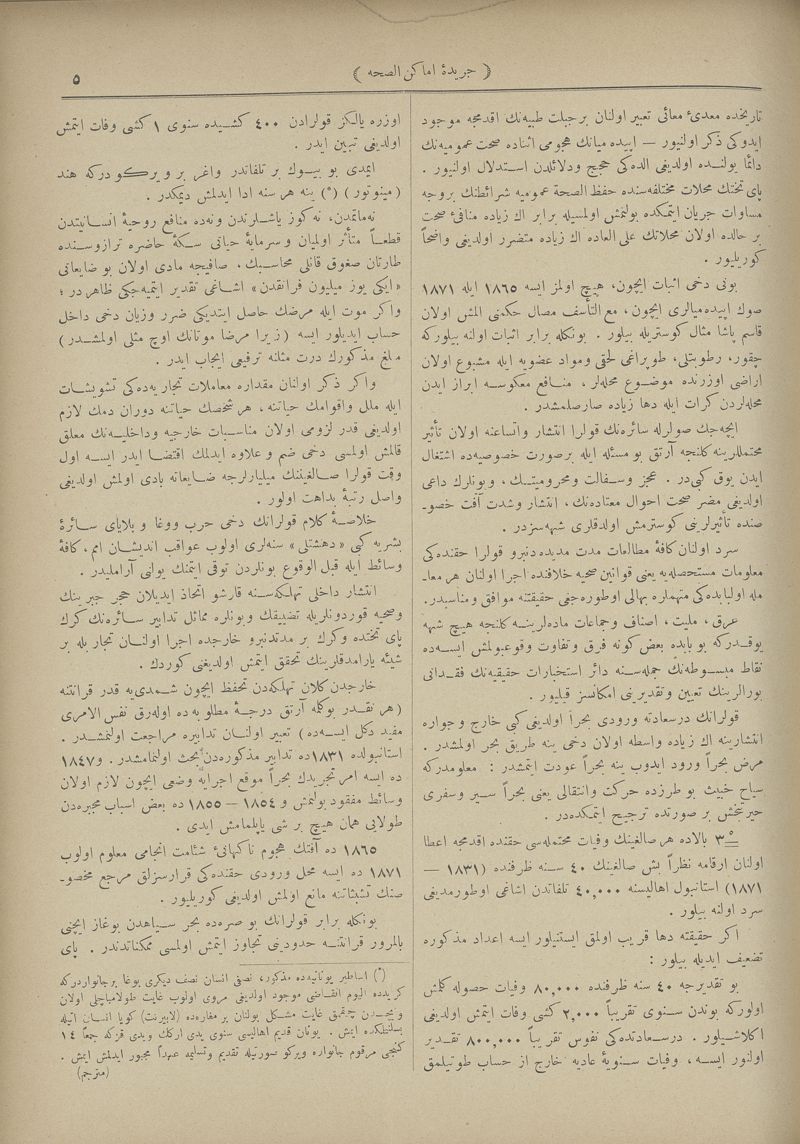 ﴿ جريدۀ اماكن الصحه ﴾
٥
تاريخده معدیء معائی تعبير اولنان برجبلت طبيه‌نك اقدمجه موجود
ايدوكی ذكر اولنيور — اپيده‌ميانك هجومی اثناده صحت عموميه‌نك
دائما يولنده اولديغی الده‌كی حجج ودلائلدن استدلال اولنيور .
پای تختك محلات مختلفه‌سنده حفظ الصحۀ عموميه شرائطنك بروجه
مساوات جريان ايتمكده بولنمش اولمسيله برابر اك زياده منافیء صحت
بر حالده اولان محلاتك علی العاده اك زياده متضرر اولديغی واضحاً
كوريليور .
بونی دخی اثبات ايچون، هيچ اولمز ايسه ١٨٦٥ ايله ١٨٧١
صوك اپيده‌ميالری ايچون، مع التأسف مصال حكمنی المش اولان
قاسم پاشا مثال كوستريله بيلور . بونكله برابر اثبات اولنه بيلوركه
چقور، رطوبتلی، طوپراغی لحقی ومواد عضويه ايله مشبوع اولان
اراضی اوزرنده موضوع محله‌لر، منافع معكوسه ابراز ايدن
محله‌لردن كرات ايله دها زياده صارصلمشدر .
ايچه‌جك صولرله سائره‌نك قولرا انتشار واتساعنه اولان تأثير
محتمللرينه كلنجه آرتق بو مسئله ايله برصورت خصوصيه‌ده اشتغال
ايدن يوق كبی‌در . عجز وسفالت ومحروميتك، وبونلرك داعی
اولديغی مضر صحت احوال معتاده‌نك، انتشار وشدت آفت خصو-
صنده تأثيرلرينی كوسترمش اولدقلری شبهه‌سزدر .
سرد اولنان كافۀ مطالعات مدت مديده‌دنبرو قولرا حقنده‌كی
معلومات مستحصله‌يه يعنی قوانين صحيه خلافنده اجرا اولنان هر معا-
مله اوليابده‌كی متهملره بهالی اوطوره‌جغی حقيقتنه موافق ومناسبدر.
عرق، مليت، اصناف وجماعات ماده‌لرينه كلنجه هيچ شبهه
يوقدركه بو بابده بعض كونه فرق وتفاوت وقوعبولمش ايسه‌ده
نقاط مبسوطه‌نك جمله‌سنه دائر استخبارات حقيقيه‌نك فقدانی
بورالرينك تعيين وتقديرينی امكانسز قيليور .
قولرانك درسعادته ورودی بحراً اولديغی كبی خارج و جواره
انتشارينه اك زياده واسطه اولان دخی ينه طريق بحر اولمشدر .
مرض بحراً ورود ايدوب ينه بحراً عودت ايتمشدر : معلومدركه
سياح خبيث بو طرزده حركت وانتقالی يعنی بحراً سير وسفری
حيرتبخش بر صورتده ترجيح ايتمكده‌در .
٣° بالاده هر صالغينك وفيات محتمله‌سی حقنده اقدمجه اعطا
اولنان ارقامه نظراً بش صالغينك ٤٠ سنه ظرفنده (١٨٣١ —
١٨٧١) استانبول اهاليسنه ٤٠,٠٠٠ تلفاتدن اشاغی اوطورمديغی
سرد اولنه بيلور .
اكر حقيقته دها قريب اولمق ايستنيلور ايسه اعداد مذكوره
تضعيف ايديله بيلور :
بو تقديرجه ٤٠ سنه ظرفنده ٨٠,٠٠٠ وفيات حصوله كلمش
اولوركه بوندن سنوی تقريباً ٢,٠٠٠ كشی وفات ايتمش اولديغی
اكلاشيلور . درسعادتده‌كی نفوس تقريباً ٨٠٠,٠٠٠ تقدير
اولنور ايسه، وفيات سنويۀ عاديه خارج از حساب طوتيلمق
اوزره يالكز قولرادن ٤٠٠ كشيده سنوی ١ كشی وفات ايتمش
اولديغی تبين ايدر .
ايمدی بو بيوك بر تلفاتدر واغر بر ويركو دركه هند
(مينوتور) (*) ينه هر سنه ادا ايدلمش ديمكدر .
نه‌ماتمدن، نه‌كوز ياشلرندن ونه‌ده منافع روحيۀ انسانيتدن
قطعاً متأثر اولميان وسرمايۀ حياتی سكۀ حاضره ترازوسنده
طارتان صغوق قانلی محاسبك، صافيجه مادی اولان بو ضايعاتی
«ايكی يوز ميليون فرانقدن» اشاغی تقدير ايتميه‌جكی ظاهردر ؛
واكر موت ايله مرضك حاصل ايتديكی ضرر وزيان دخی داخل
حساب ايديلور ايسه (زيرا مرضا موتانك اوچ مثلی اولمشدر)
مبلغ مذكورك درت مثلنه ترفيعی ايجاب ايدر .
واكر ذكر اولنان مقداره معاملات تجاريه‌ده‌كی تشويشات
ايله ملل واقوامك حياتنه، هر شخصك حياتنه دوران دمك لازم
اولديغی قدر لزومی اولان مناسبات خارجيه وداخليه‌نك معلق
قالمش اولمسی دخی ضم و علاوه ايدلمك اقتضا ايدر ايسه اول
وقت قولرا صالغيننك ميليارلرجه ضايعاته بادی اولمش اولديغی
واصل رتبۀ بداهت اولور .
خلاصۀ كلام قولرانك دخی حرب ووغا و بلايای سائرۀ
بشريه كبی «دهشتلی» سنه‌لری اولوب عواقب انديشان امم، كافۀ
وسائط ايله قبل الوقوع بونلردن توقی ايتمنك يولنی آراملیدر .
انتشار داخلی تهلكه‌سنه قارشو اتخاذ ايديلان حجر جبرينك
وصحيه قوردونلريله تضييقك وبونلره مماثل تدابير سائره‌نك كرك
پای تختده وكرك بر مدتدنبرو خارجده اجرا اولنان تجاربله بر
شيئه يارامدقلرينك تحقق ايتمش اولديغنی كوردك .
خارجدن كلان تهلكه‌دن تحفظ ايچون شمدی‌يه قدر قرانتنه
(هر نقدر بوكله آرتق درجۀ مطلوبه‌ده اوله‌رق نفس الامری
مفيد دكل ايسه‌ده) تعبير اولنان تدابيره مراجعت اولنمشدر .
استانبولده ١٨٣١ده تدابير مذكوره‌دن بحث اولنمامشدر. و١٨٤٧
ده ايسه امر تجريدك بحراً موقع اجرايه وضعی ايچون لازم اولان
وسائط مفقود بولنمش و ١٨٥٤ — ١٨٥٥ ده بعض اسباب مجبره‌دن
طولايی همان هيچ بر شی ياپلمامش ايدی .
١٨٦٥ ده آفتك هجوم ناكهانیء شئامت انجامی معلوم اولوب
١٨٧١ ده ايسه محل ورودی حقنده‌كی قرارسزلق مرجع مخصو-
صنك تشبثاتنه مانع اولمش اولديغی كوريليور .
بونكله برابر قولرانك بو صره‌ده بحر سياهدن بوغاز ايچنی
بالمرور قرانتنه حدودينی تجاوز ايتمش اولمسی ممكناتدندر . پای
(*) اساطير يونانيه‌ده مذكور، نصفی انسان نصف ديكری بوغا برجانواردركه
كريدده اليوم انقاضی موجود اولديغی مروی اولوب غايت طولامباچلی اولان
ويچندن چيقمق غايت مشكل بولنان بر مغاره‌ده (لابيرنت) كويا انسان اتيله
بسلنيلكده ايمش . يونان قديم اهاليسی سنوی يدی اركك ويدی قزكه جمعاً ١٤
كنجی مرقوم جانواره ويركو صورتيله تقديم وتسليمه عهداً مجبور ايدلمش ايمش .
(مترجم)